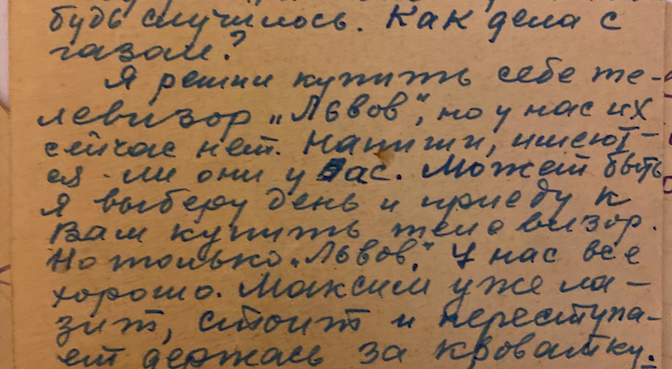 будь случилось. Как дела с
газом?
Я решил купить себе те-
левизор „Львов", но у нас их
сейчас нет. Напиши, имеют-
ся ли они у Вас. Может быть
я выберу день и приеду к
Вам купить телевизор.
Но только „Львов". У нас все
хорошо. Максим уже ла-
зит, стоит и переступа-
ет держась за кроватку.